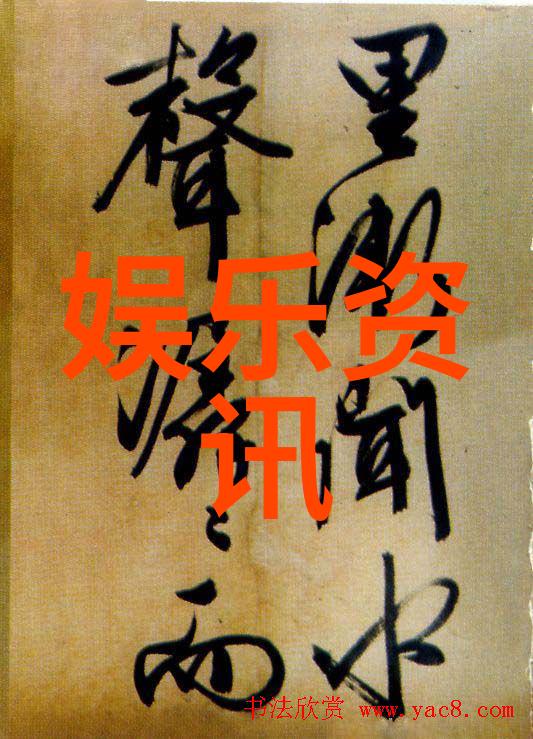 里漸聞水
聲潺〻而
娱乐资
讯
书法欣赏 www.yac8.com